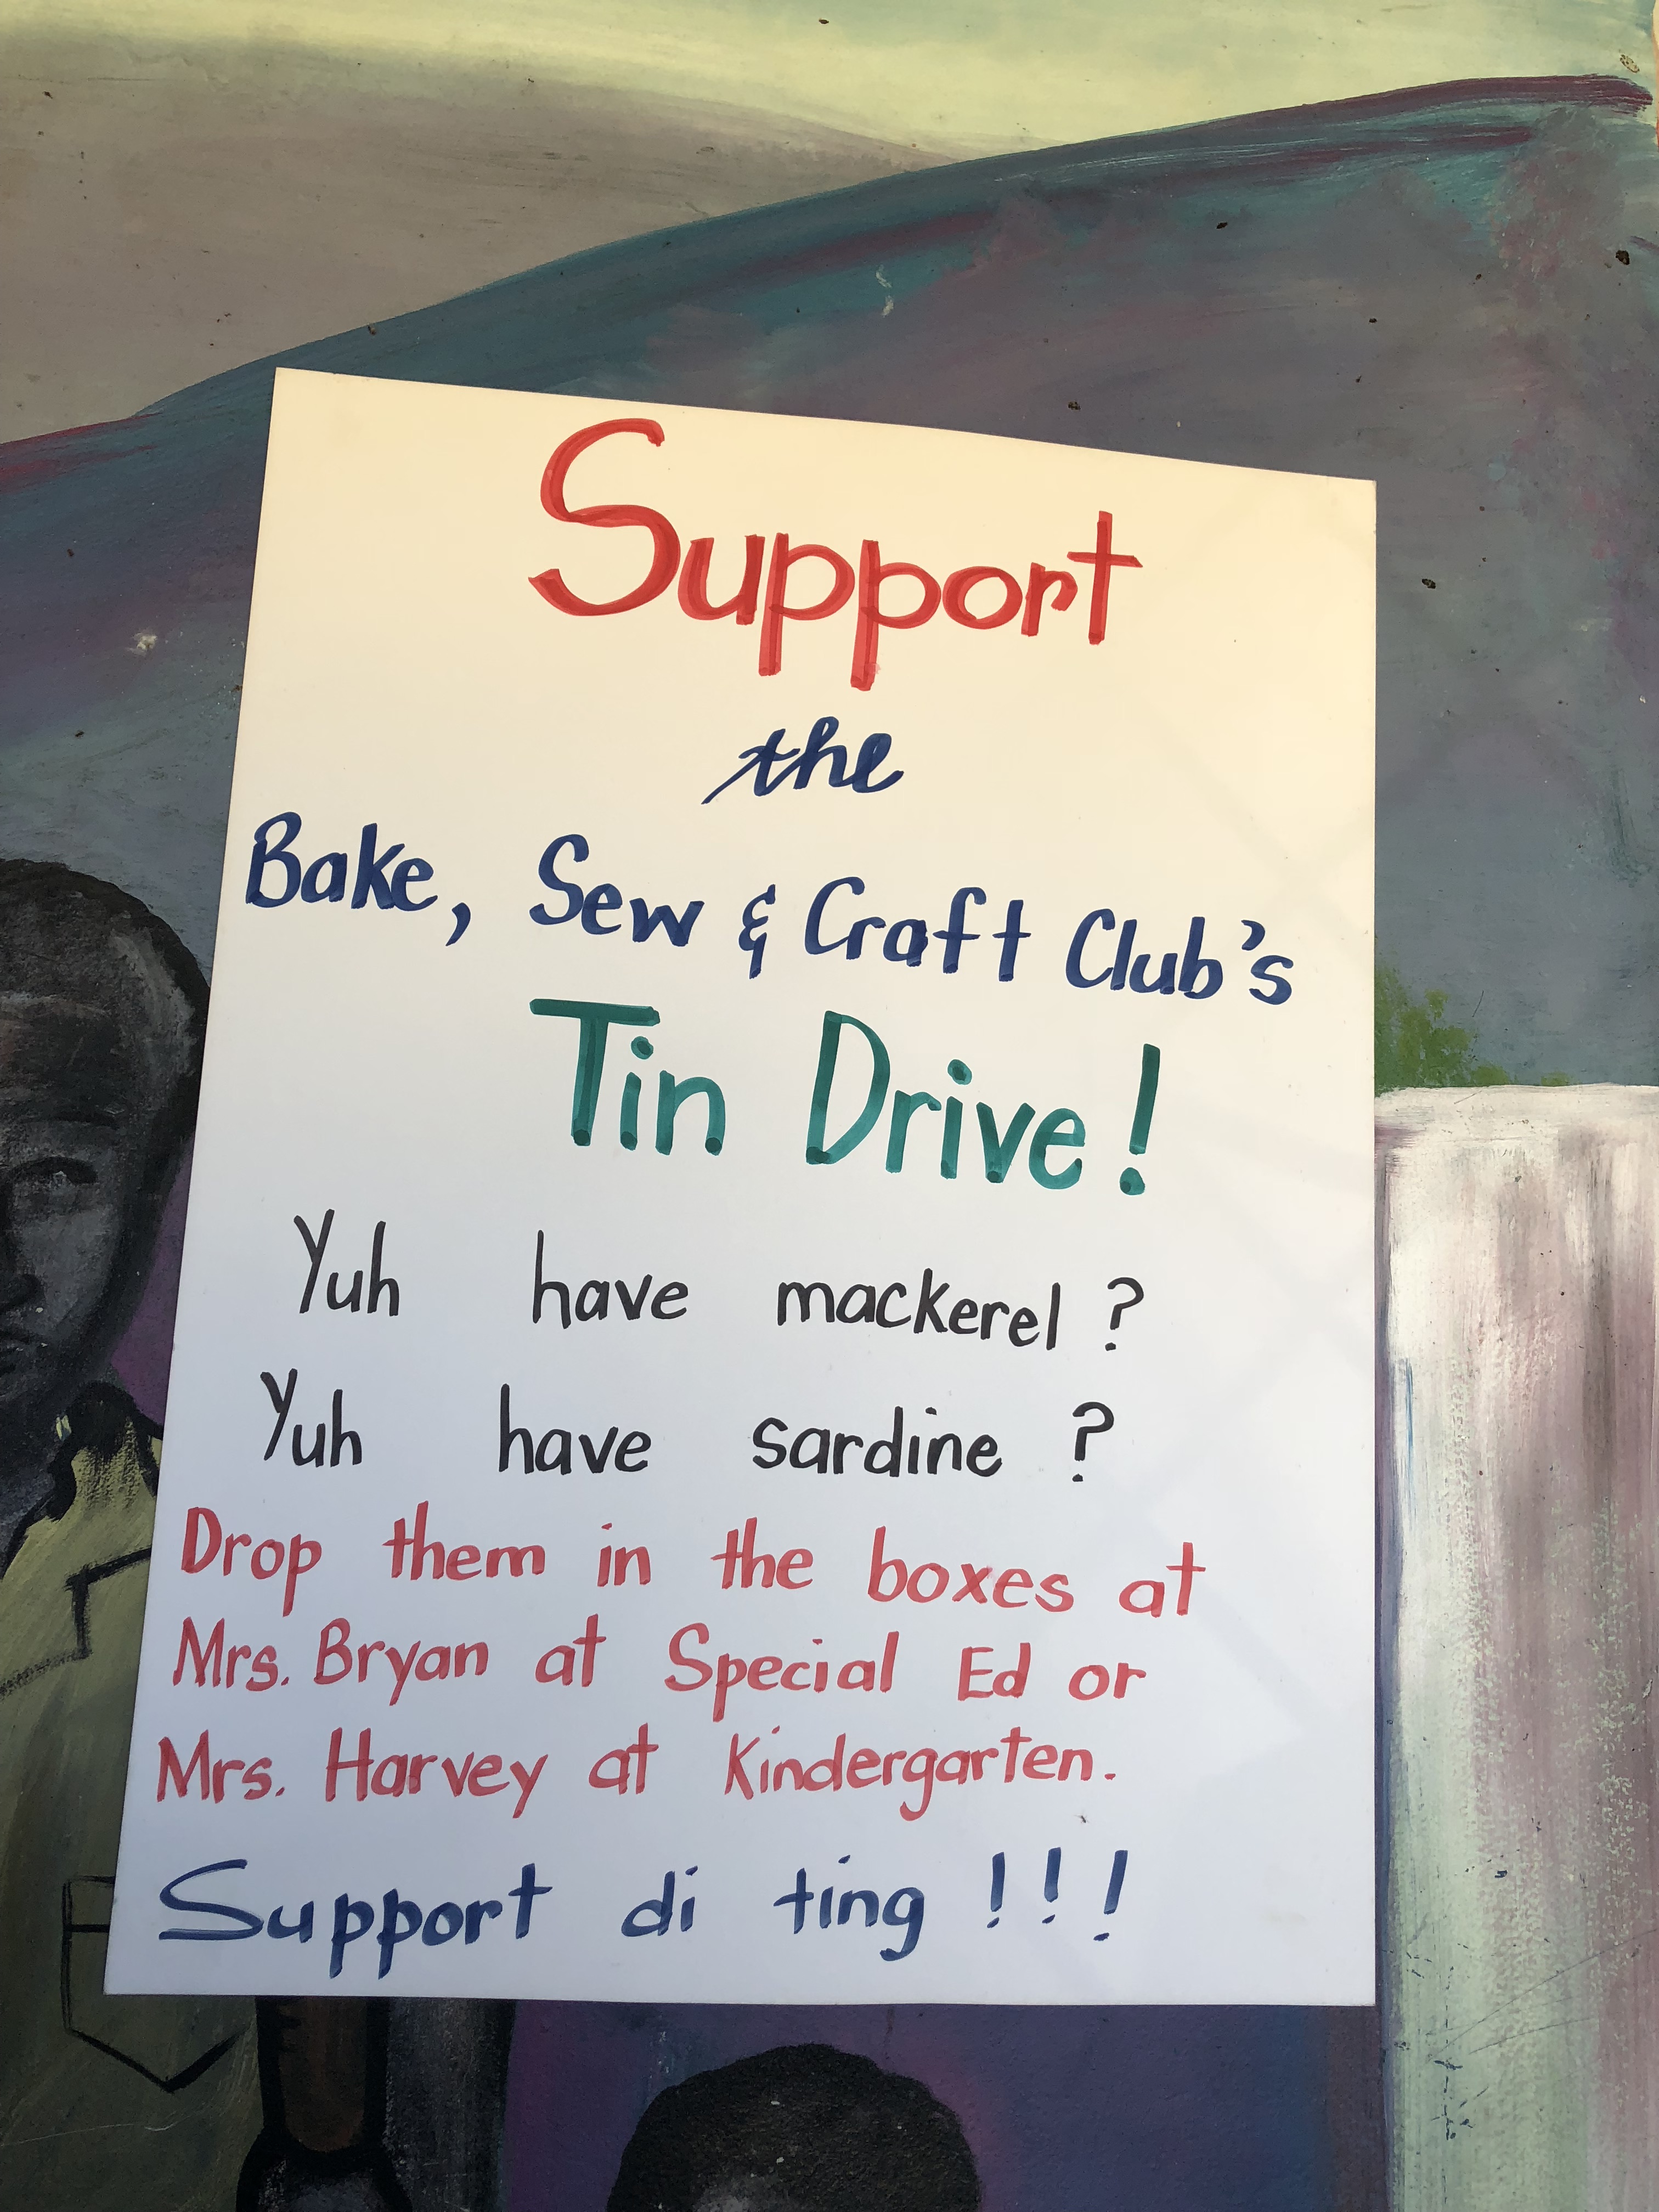 Support
the
Bake, Sew & Craft Club's
Tin Drive!
Yuh have mackerel?
Yuh have sardine?
Drop them in the boxes at
Mrs. Bryan at Special Ed or
Mrs. Harvey at Kindergarten.
Support di ting!!!